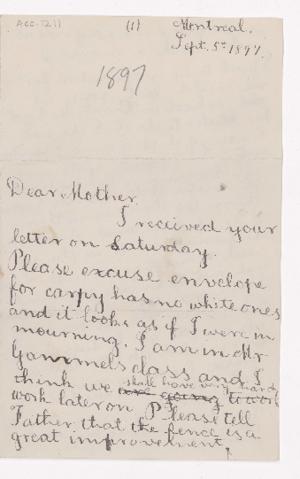 ACC-1211
(1)
Montreal.
Sept. 5th 1897.
1897
Dear Mother.
I received your
letter on Saturday.
Please excuse envelope
for carpy has no white ones
and it looks as if I were in
mourning. I am in Mr
Gammels class and I
think we are going to work
shall have very hard
work later on. Please tell
Father that the fence is a
great improvement.